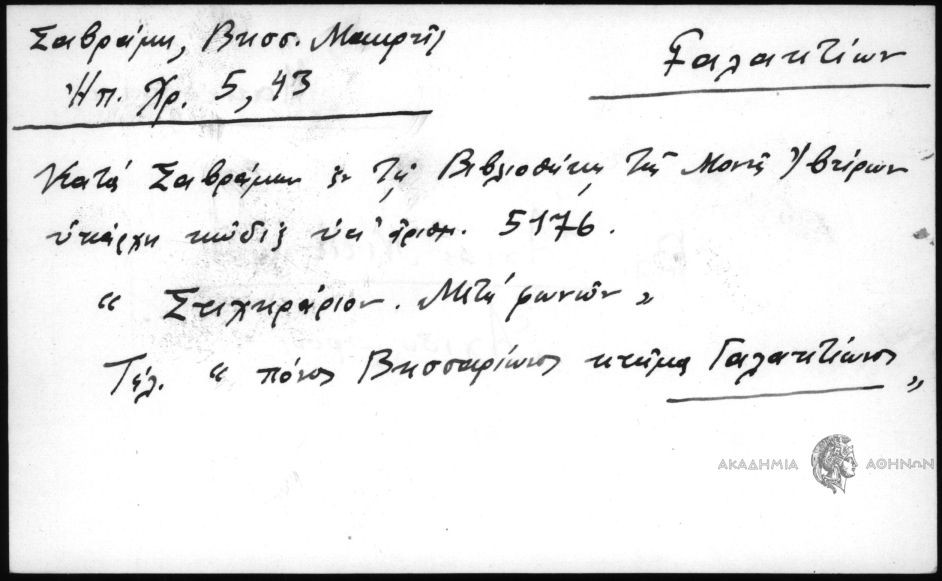 Σαβράμη, Βησσ. Μακρῆς
Ἠπ. Χρ. 5, 43
Γαλακτίων
Κατά Σαβράμην ἐν τῇ Βιβλιοθήκῃ τῆς Μονῆς Ἰβήρων
ὑπάρχει κώδιξ ὑπ' ἀριθμ. 5176.
“ Στιχηράριον. Μετά φωνῶν „
Τέλ. “ πόνος Βησσαρίωνος κτῆμα Γαλακτίωνος „
ΑΚΑΔΗΜΙΑ ΑΘΗΝΩΝ